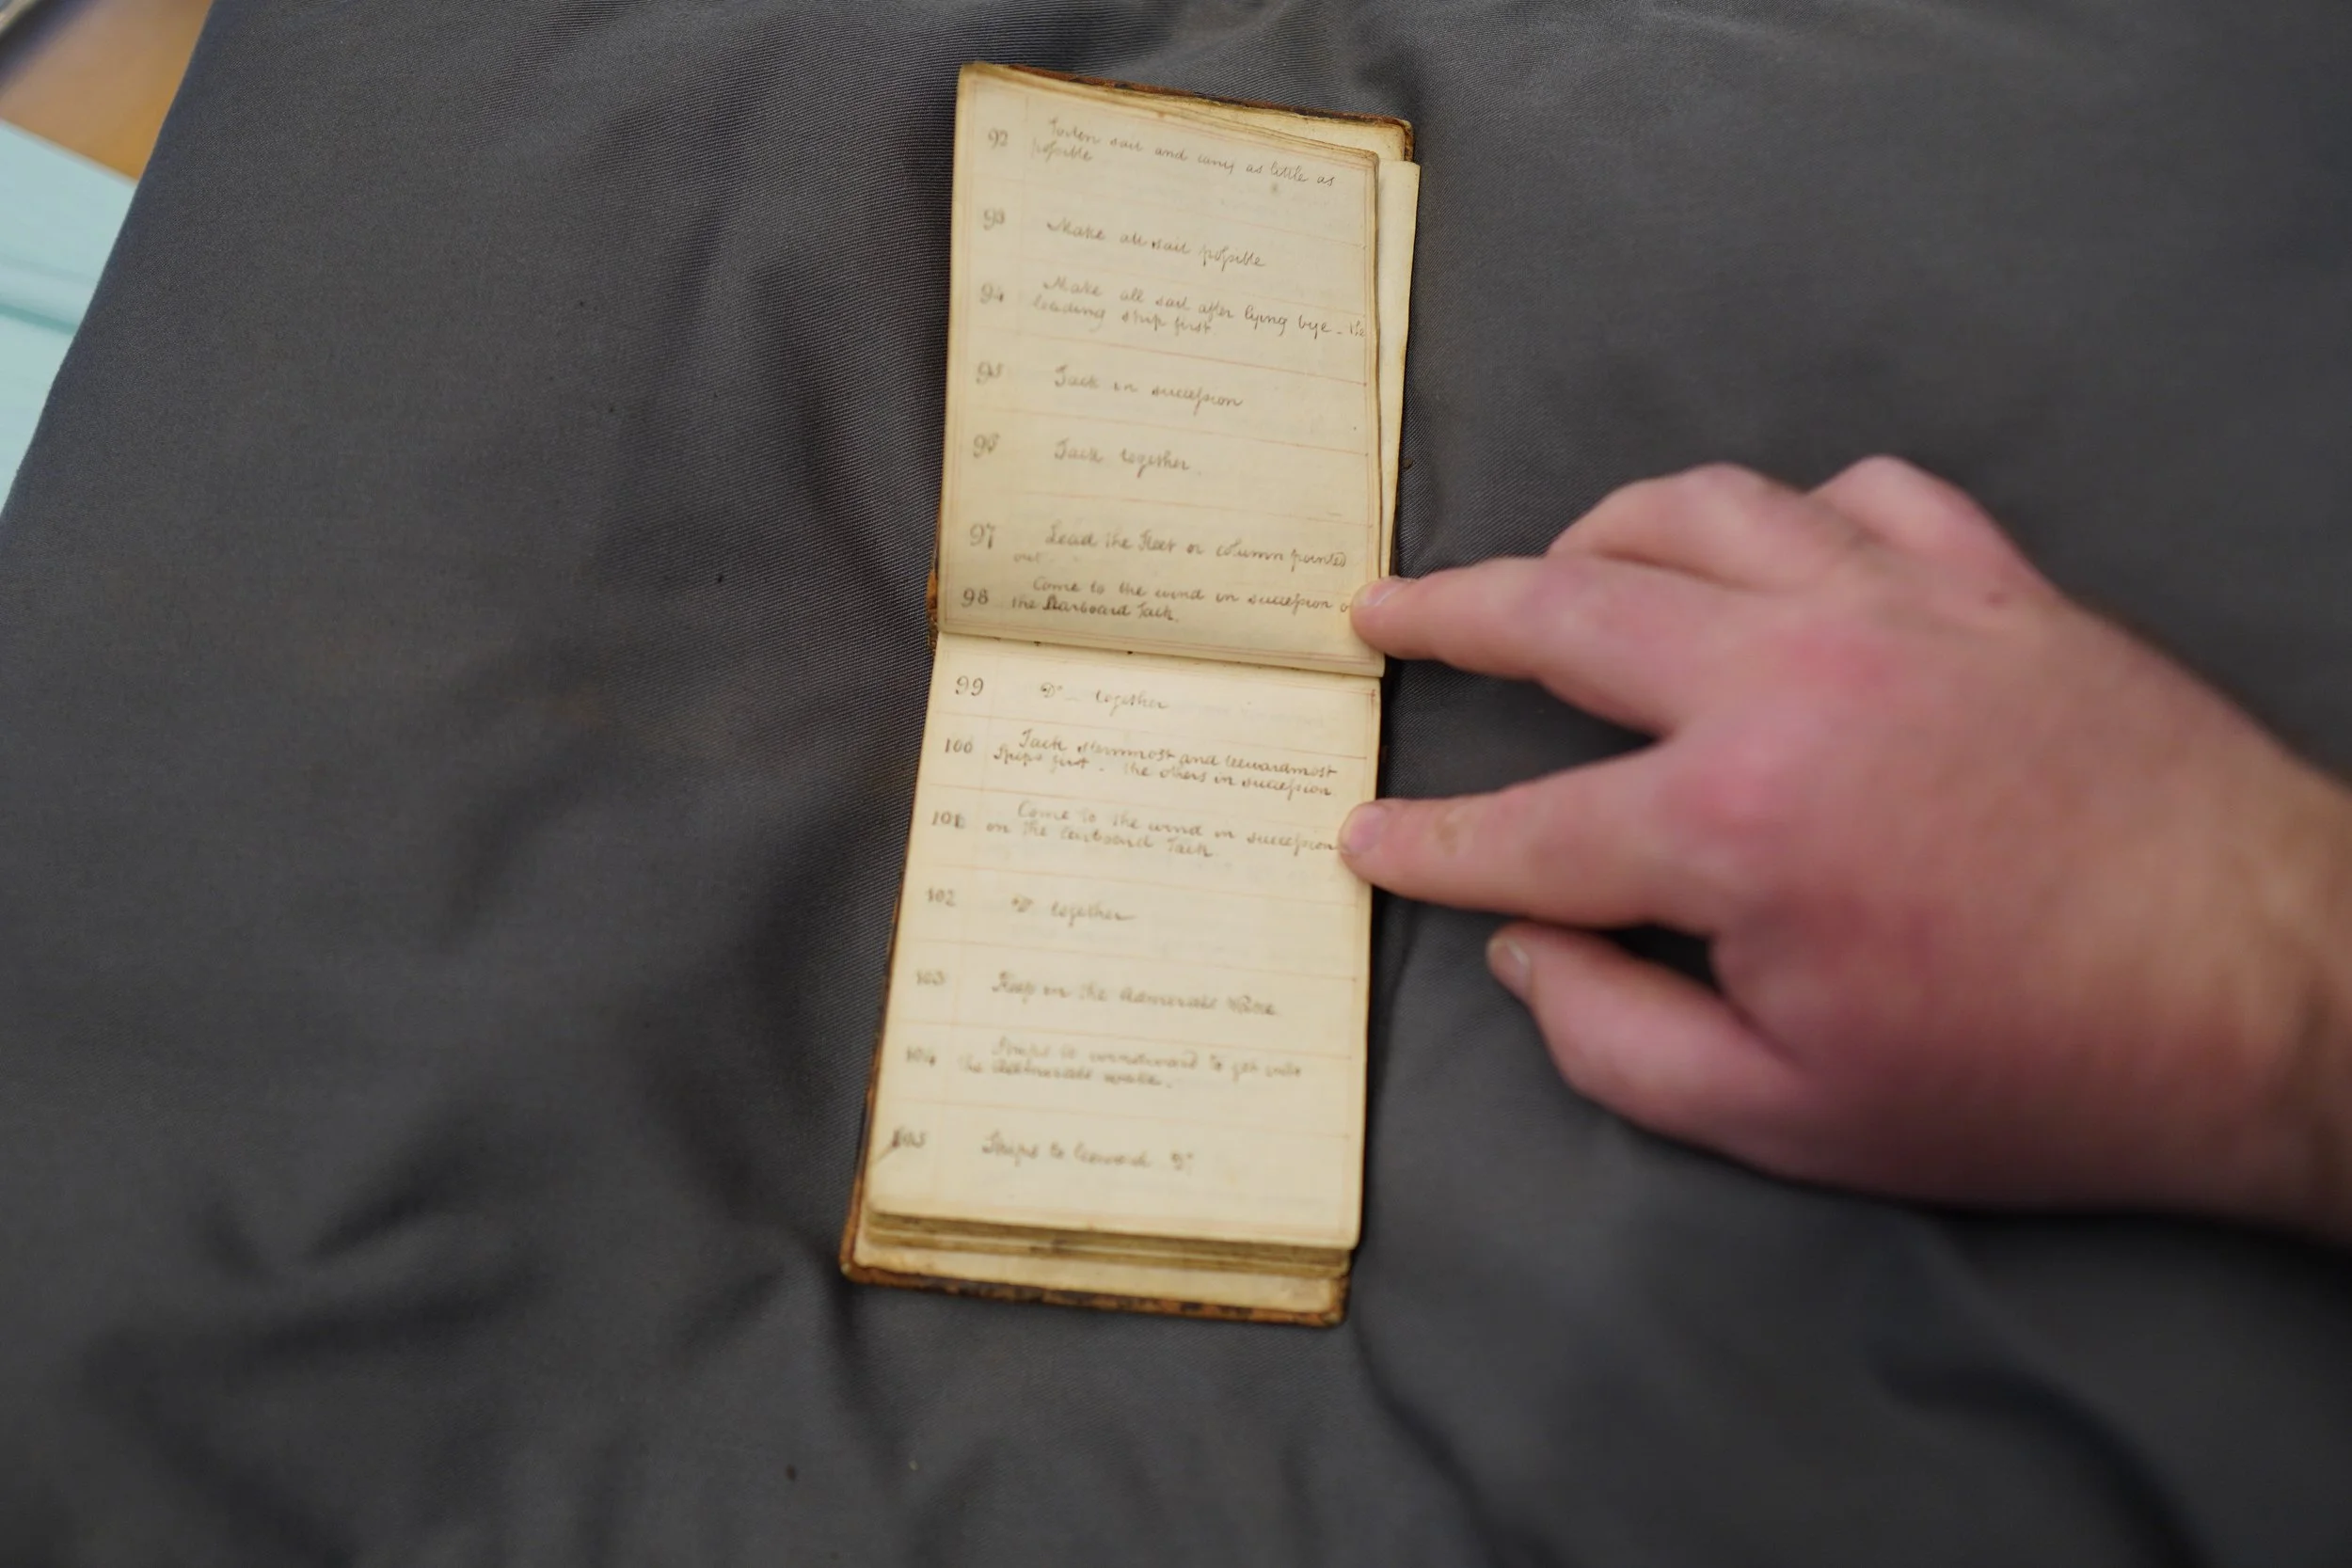 92 Shorten sail and carry as little as
poſsible
93 Make all sail poſsible
94 Make all sail after lying bye - the
leading ship first.
95 Tack in succeſsion
96 Tack together.
97 Lead the Fleet or column pointed
out.
98 Come to the wind in succeſsion
the Starboard Tack.
99 Do - together
100 Tack sternmost and leewardmost
Ships first - the others in succeſsion
101 Come to the wind in succeſsion
on the larboard Tack.
102 Do together
103 Keep in the Admirals Wake
104 Ships to windward to get into
the Admirals wake.
105 Ships to leeward Do